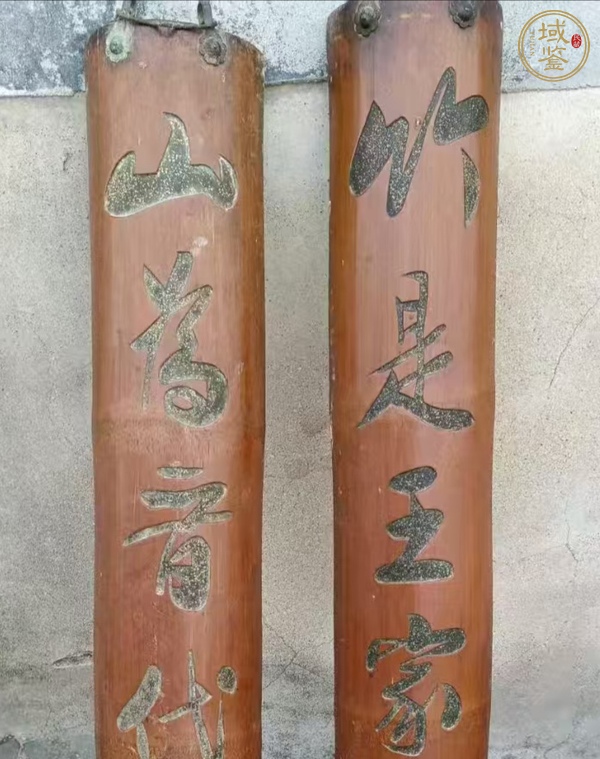 竹是王家
山為晋代
域鉴